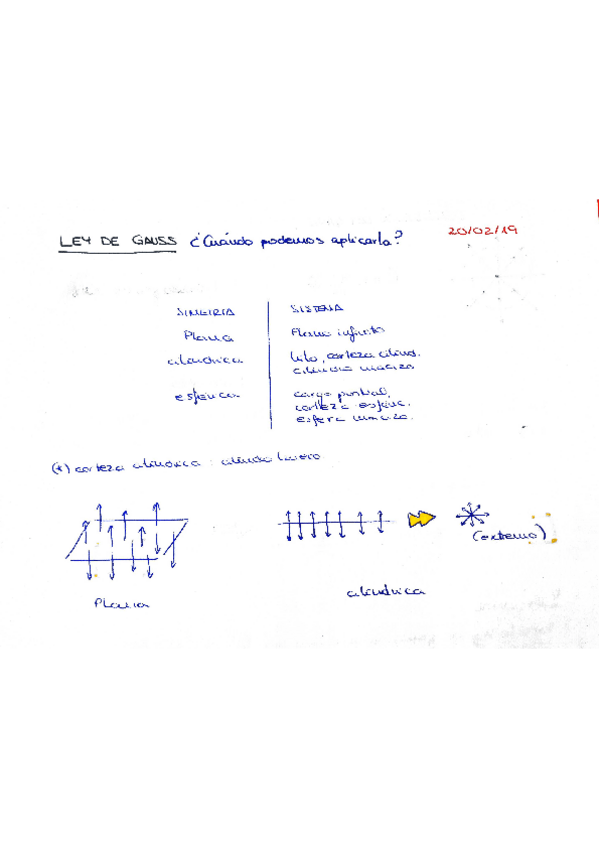 LEY DE GAUSS ¿Cuándo podemos aplicarla?
20/02/19
SIMETRÍA SISTEMA
Plana Plano infinito
cilíndrica hilo, corteza cilínd.
cilindro macizo
esférica carga puntual,
corteza esféric.
esfera maciza.
(*) corteza cilíndrica : cilindro hueco
(extremo)
Plana
cilíndrica